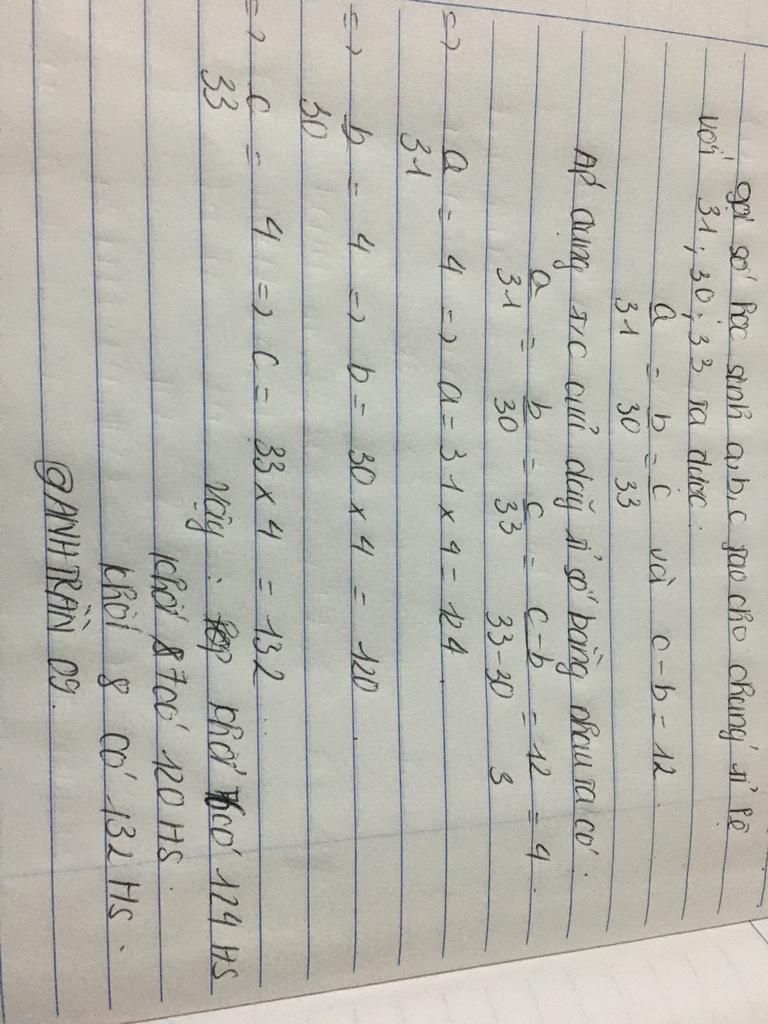 gọi số học sinh a, b, c sao cho chúng tỉ lệ
với 31; 30; 33 ta được.
a/31 = b/30 = c/33 và c-b = 12
Áp dụng t/c của dãy tỉ số bằng nhau ta có.
a/31 = b/30 = c/33 = c-b/33-30 = 12/3 = 4.
=> a/31 = 4 => a = 31 x 4 = 124.
=> b/30 = 4 => b = 30 x 4 = 120.
=> c/33 = 4 => c = 33 x 4 = 132.
Vậy: khối có 124 HS
khối 7 có 120 HS.
khối 8 có 132 HS.
@ANHTRẦN 09.